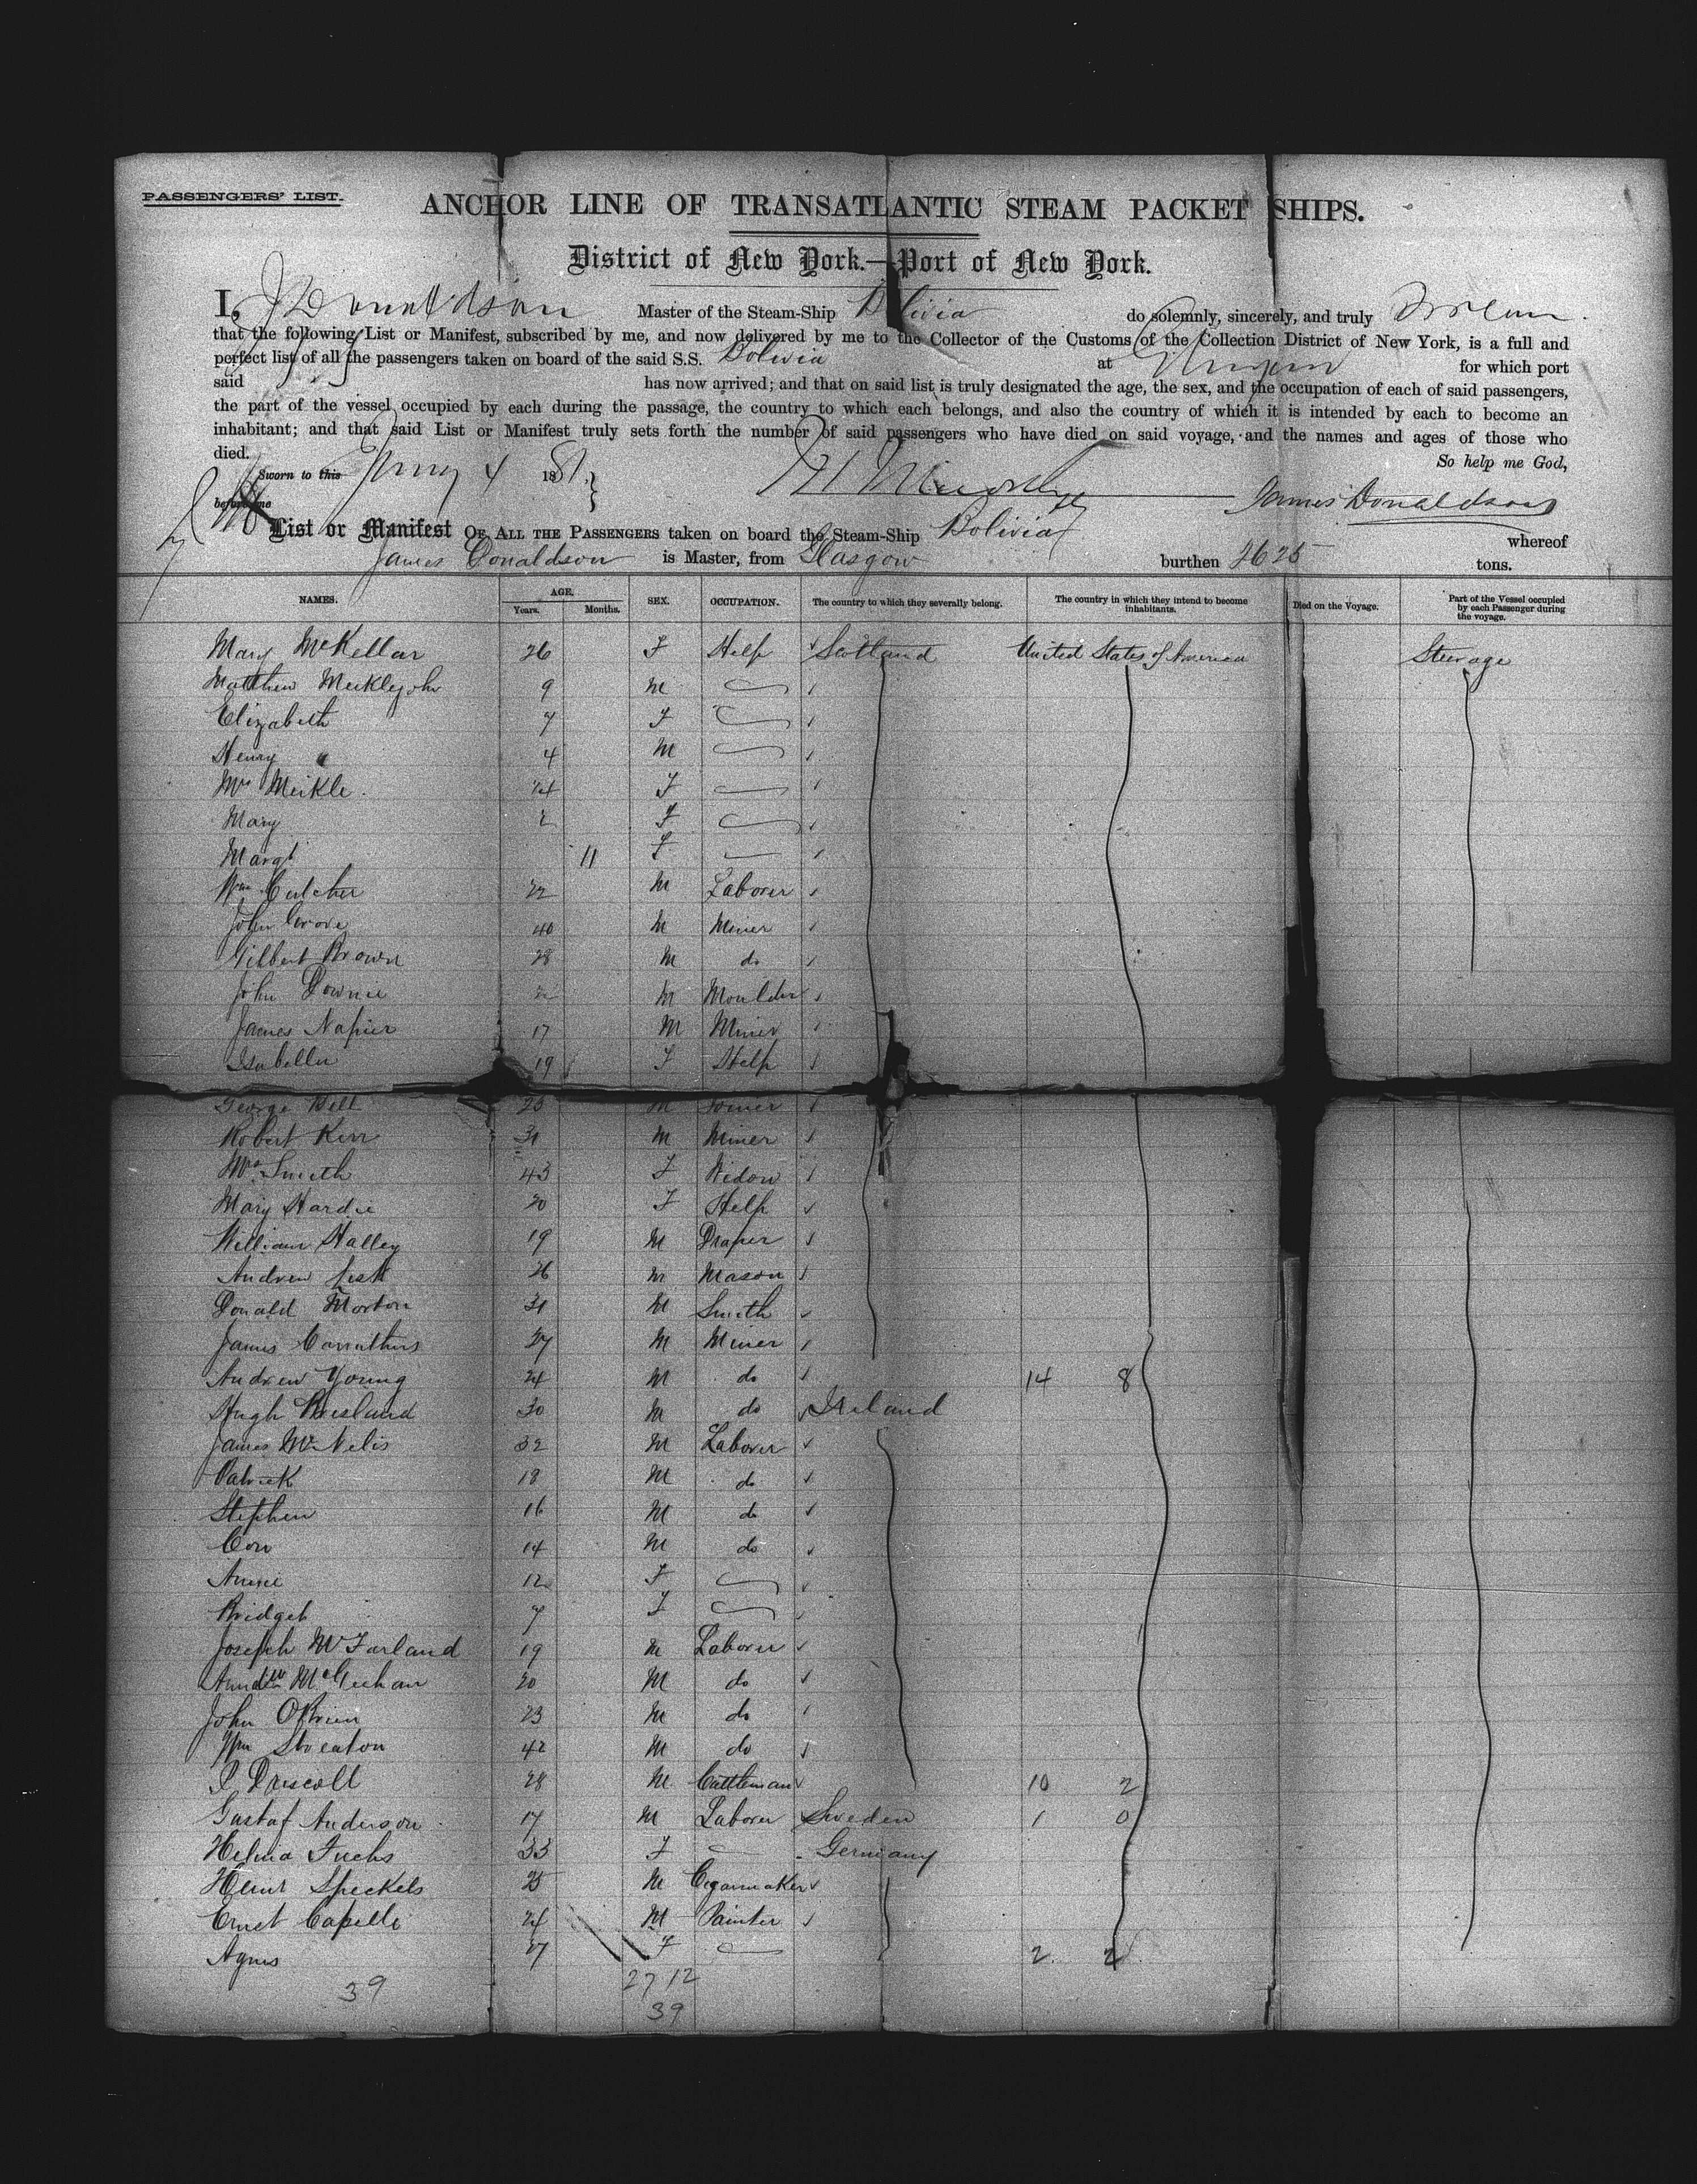 PASSENGERS' LIST.
ANCHOR LINE OF TRANSATLANTIC STEAM PACKET SHIPS.
District of New York.—Port of New York.
I, J Donaldson Master of the Steam-Ship Bolivia do solemnly, sincerely, and truly
that the following List or Manifest, subscribed by me, and now delivered by me to the Collector of the Customs of the Collection District of New York, is a full and
perfect list of all the passengers taken on board of the said S.S. Bolivia at for which port
said has now arrived; and that on said list is truly designated the age, the sex, and the occupation of each of said passengers,
the part of the vessel occupied by each during the passage, the country to which each belongs, and also the country of which it is intended by each to become an
inhabitant; and that said List or Manifest truly sets forth the number of said passengers who have died on said voyage, and the names and ages of those who
died. So help me God,
Sworn to this 4 1881
before me James Donaldson
List or Manifest OF ALL THE PASSENGERS taken on board the Steam-Ship Bolivia whereof
James Donaldson is Master, from Glasgow burthen 2625 tons.
NAMES. AGE. Years. Months. SEX. OCCUPATION. The country to which they severally belong. The country in which they intend to become inhabitants. Died on the Voyage. Part of the Vessel occupied by each Passenger during the voyage.
Mary McKellar 26 F Help Scotland United States of America Steerage
Matthew Meiklejohn 9 M
Elizabeth 7 F
Henry " 4 M
Mrs Meikle 24 F
Mary 2 F
Margt 11 F
Wm Butcher 22 M Laborer
John 40 M Miner
Gilbert Brown 28 M do
John Downie M Moulder
James Napier 17 M Miner
Isabella 19 F Help
George Bell 25 M Joiner
Robert Kerr 31 M Miner
Mrs Smith 43 F Widow
Mary Hardie 20 F Help
William Halley 19 M Draper
Andrew 26 M Mason
Donald Morton 31 M Smith
James Carruthers 27 M Miner
Andrew Young 24 M do 14 8
Hugh Bresland 30 M do Ireland
James McNelis 32 M Laborer
Patrick 18 M do
Stephen 16 M do
Con 14 M do
Annie 12 F
Bridget 7 F
Joseph McFarland 19 M Laborer
McGeehan 20 M do
John OBrien 23 M do
Wm Sweaton 42 M do
P Driscoll 28 M Cattleman 10 2
Gustaf Anderson 17 M Laborer Sweden 1 0
Helina Fuchs 33 F Germany
Heinr Speckels 25 M Cigarmaker
Ernst Capelle 24 M Painter
Agnes 27 F 2 2
39 27 12
39